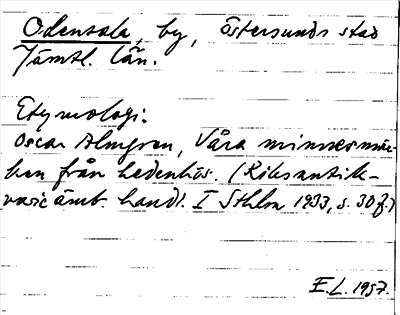 Odensala, by, Östersunds stad
Jämtl. län.
Etymologi:
Oscar Almgren, Våra minnesmär-
ken från hednatid. (Riksantik-
varieämb. handl. I Sthlm 1933, s. 30 f.)
E.L. 1957.